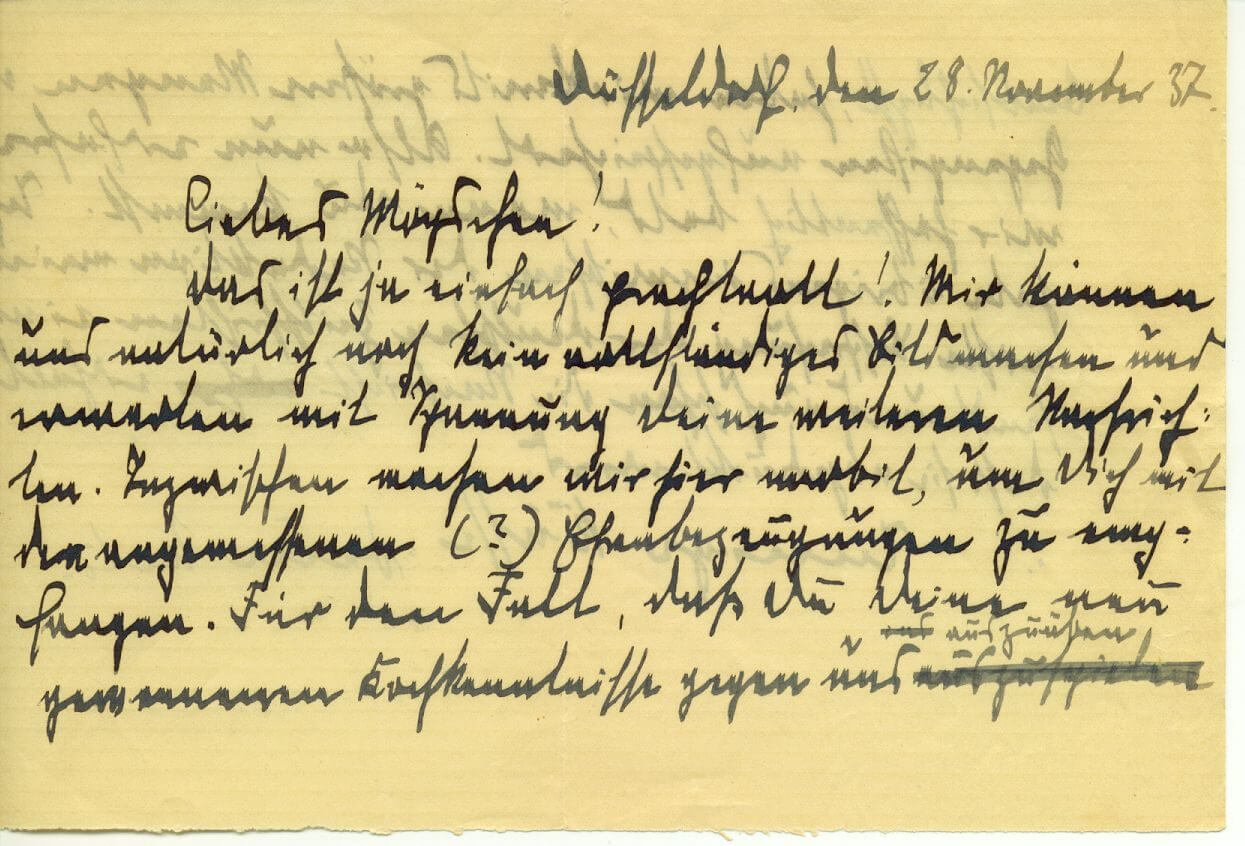 Düsseldorf, den 28. November 37.
Liebes Möpschen!
Das ist ja einfach prachtvoll! Wir können
uns natürlich noch kein vollständiges Bild machen und
erwarten mit Spannung Deine weiteren Nachrich-
ten. Inzwischen wachsen wir hier, um Dich mit
den angemessenen (?) Ehrenbezeugungen zu emp-
fangen. Für den Fall, daß Du Deine neu
auszuüben
gewonnenen Kochkenntnisse gegen uns auszuspielen